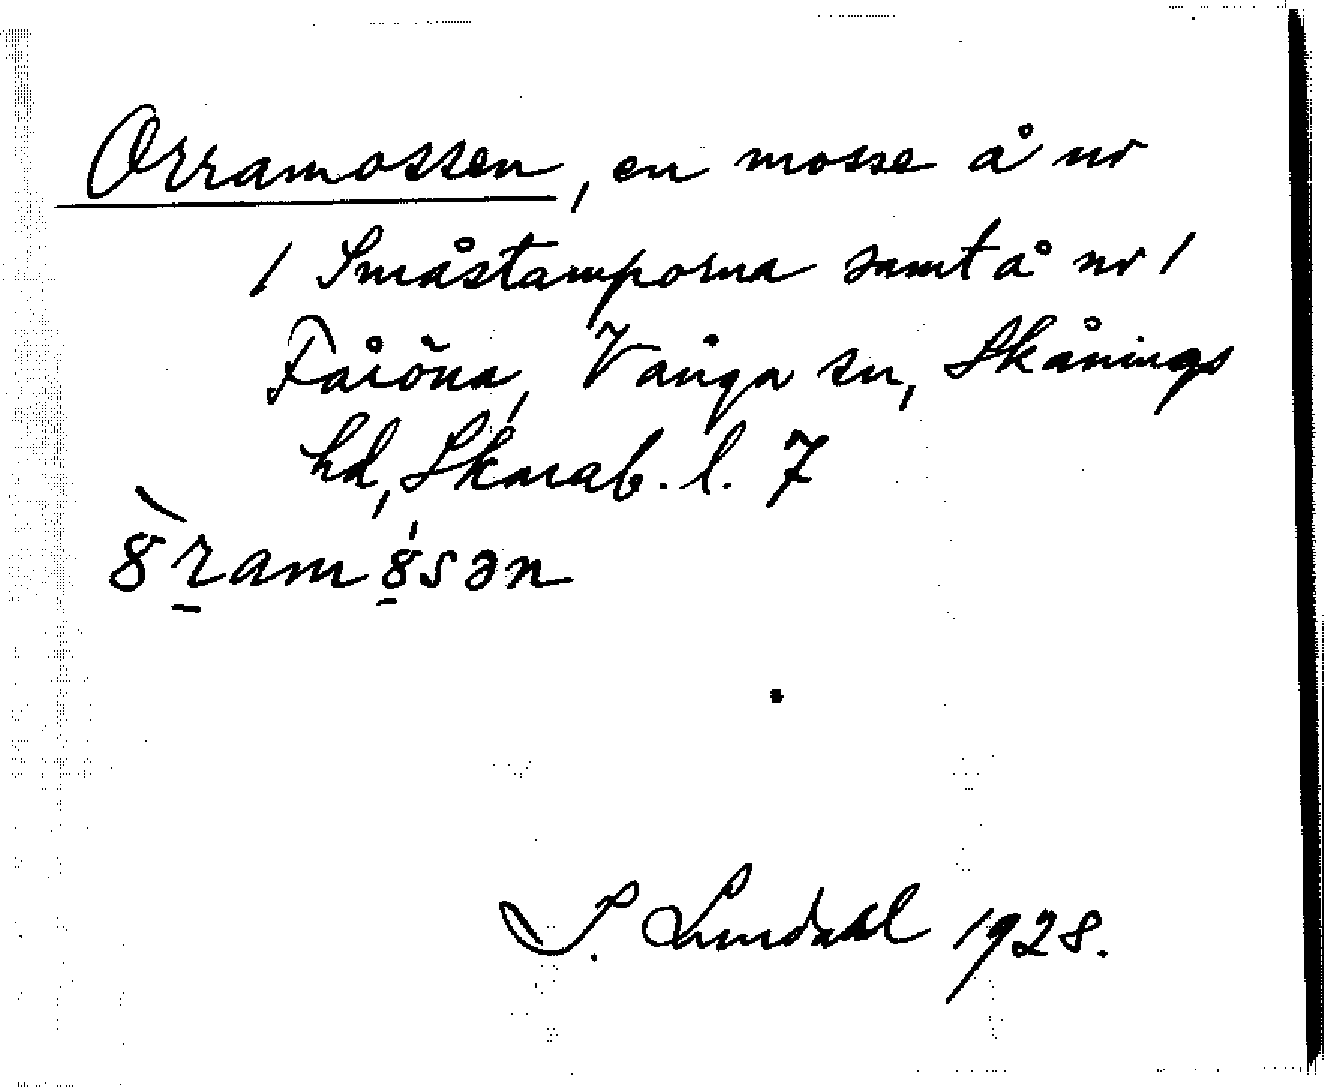 Orramossen, en mosse å nr
1 Småstamporna samt å nr 1
Fåröna, Vånga sn, Skånings
hd, Skarab. l. 7
S. Lindahl 1928.